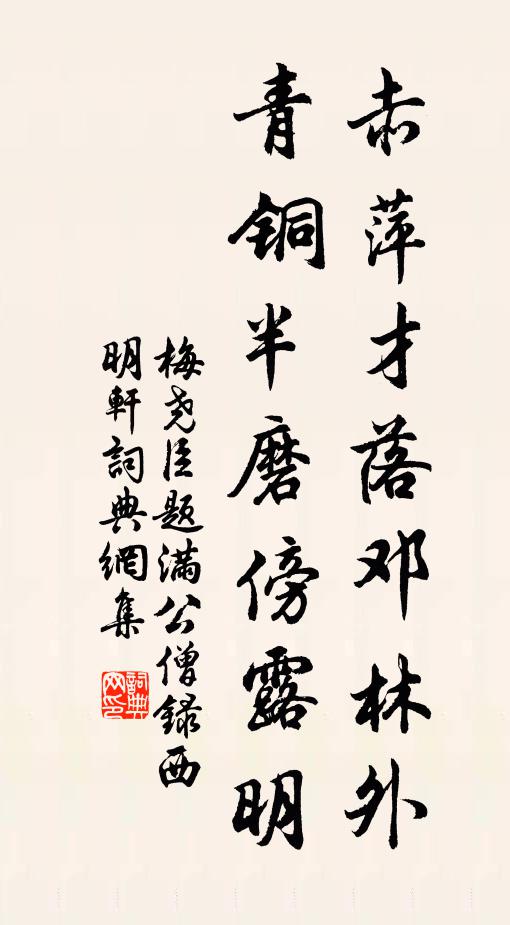 赤萍才落邓林外
青铜半磨傍露明
梅尧臣题满公僧录西
明軒詞典網集
詞典網印